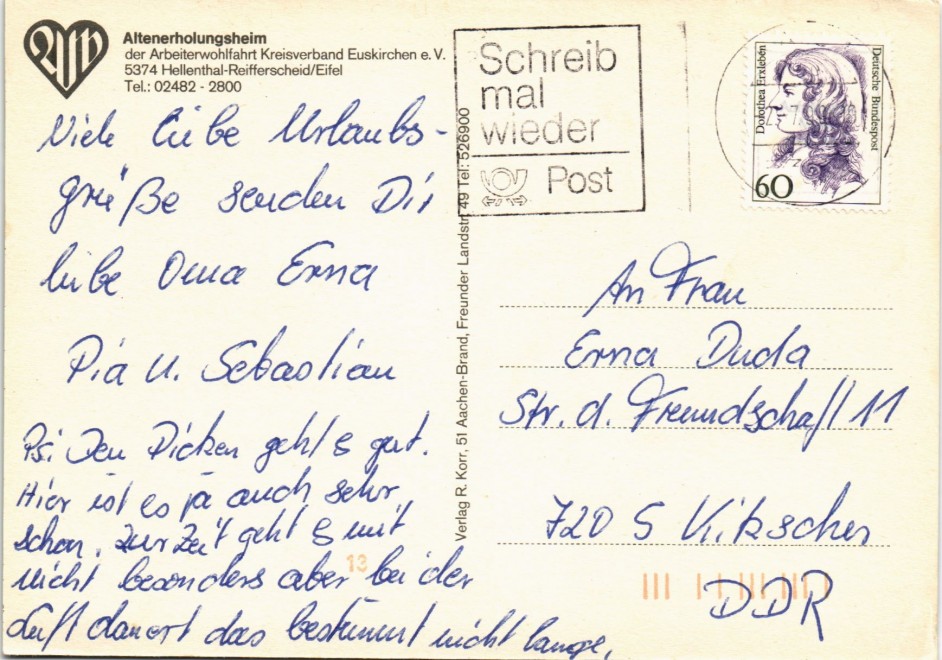 Altenerholungsheim
der Arbeiterwohlfahrt Kreisverband Euskirchen e. V.
5374 Hellenthal-Reifferscheid/Eifel
Tel.: 02482 - 2800
Viele liebe Urlaubs-
grüße senden Dir
liebe Oma Erna
Pia u. Sebastian
Ps: Den Dicken geht's gut.
Hier ist es ja auch sehr
schön. Zur Zeit geht's mit
nicht besonders aber bei der
Luft dauert das bestimmt nicht lange.
Verlag R. Korr, 51 Aachen-Brand, Freunder Landstr. 49 Tel: 526900
Schreib
mal
wieder
Post
Dorothea Erxleben
Deutsche Bundespost
60
An Frau
Erna Duda
Str. d. Freundschaft 11
7205 Kitzscher
DDR
13